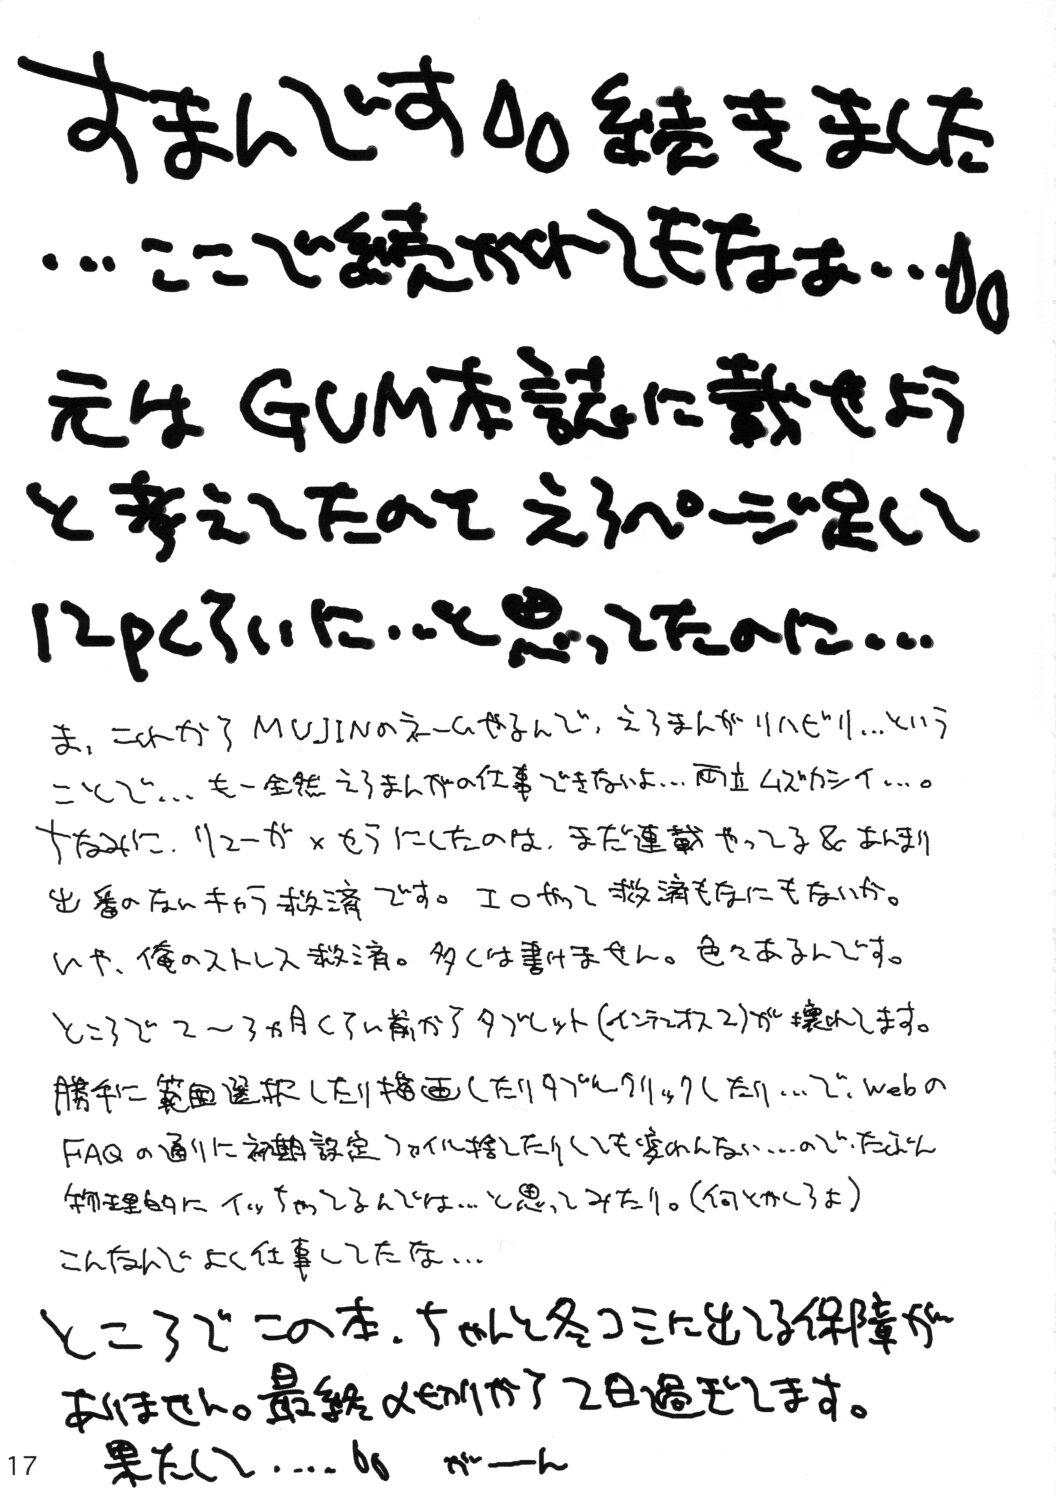 すまんです 続きました
…ここで続かれてもなぁ…
元は GUM本誌に載せよう
と考えてたので えろページ足して
12pくらいに…と思ってたのに…
ま、これから MUJINのネームやるんで、えろまんがリハビリ…という
ことで… も一全然 えろまんがの仕事できないよ…両立ムズカシイ…。
ちなみに、リューが×せらにしたのは、まだ連載やってる&あんまり
出番のないキャラ救済です。エロやって救済もなにもないか。
いや、俺のストレス救済。多くは書けません。色々あるんです。
ところで2〜3ヵ月くらい前からタブレット(インテュオス2)が壊れてます。
勝手に範囲選択したり描画したりダブルクリックしたり…で、webの
FAQの通りに初期設定ファイル捨てたりしても変わんない…ので、たぶん
物理的にイッちゃってるんでは…と思ってみたり。(何とかしろよ)
こんなんでよく仕事してたな…
ところでこの本、ちゃんと冬コミに出てる保障が
ありません。最終〆切から2日過ぎてます。
果たして…… がーん
17